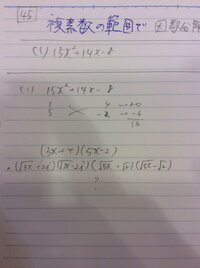 45 複素数の範囲で 因数分解
(1) 15x²+14x-8
(1) 15x²+14x-8
3 4 →20
5 -2 →-6
14
(3x+4)(5x-2)
=(√3x+2i)(√3x-2i)(√5x+√2)(√5x-√2)
?